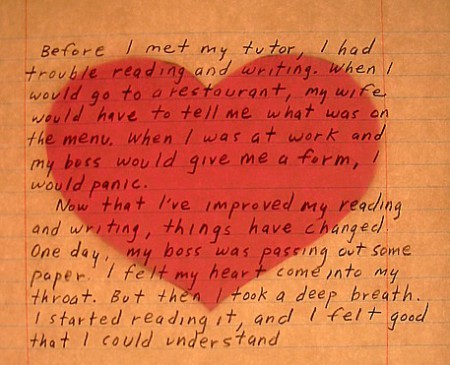 Before I met my tutor, I had
trouble reading and writing. When I
would go to a restaurant, my wife
would have to tell me what was on
the menu. When I was at work and
my boss would give me a form, I
would panic.
Now that I've improved my reading
and writing, things have changed
One day, my boss was passing out some
paper. I felt my heart come into my
throat. But then I took a deep breath.
I started reading it, and I felt good
that I could understand